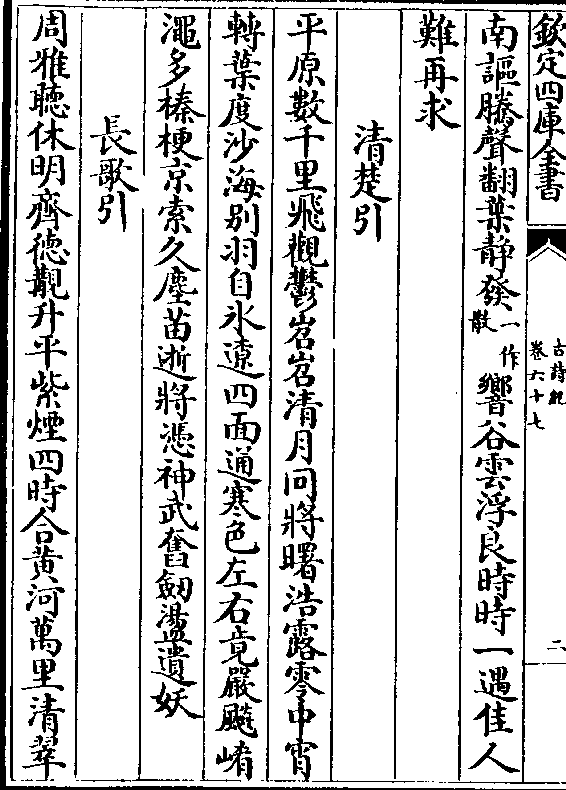 欽定四庫全書
古詩紀
卷六十七
二
南謳騰聲翻葉静發一作散響谷雲浮良時時一遇佳人
難再求
清楚引
平原數千里飛觀鬱岧岧清月冏將曙浩露零中宵
轉葉度沙海别羽自氷遼四面通寒色左右竟嚴飈崤
澠多榛梗京索久塵苗逝將憑神武奮劒盪遺妖
長歌引
周雅聴休明齊徳覩升平紫煙四時合黄河萬里清翠